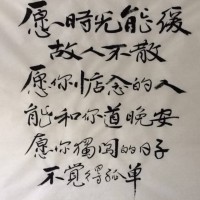 愿时光能缓
故人不散
愿你惦念的人
能和你道晚安
愿你独闯的日子
不觉得孤单